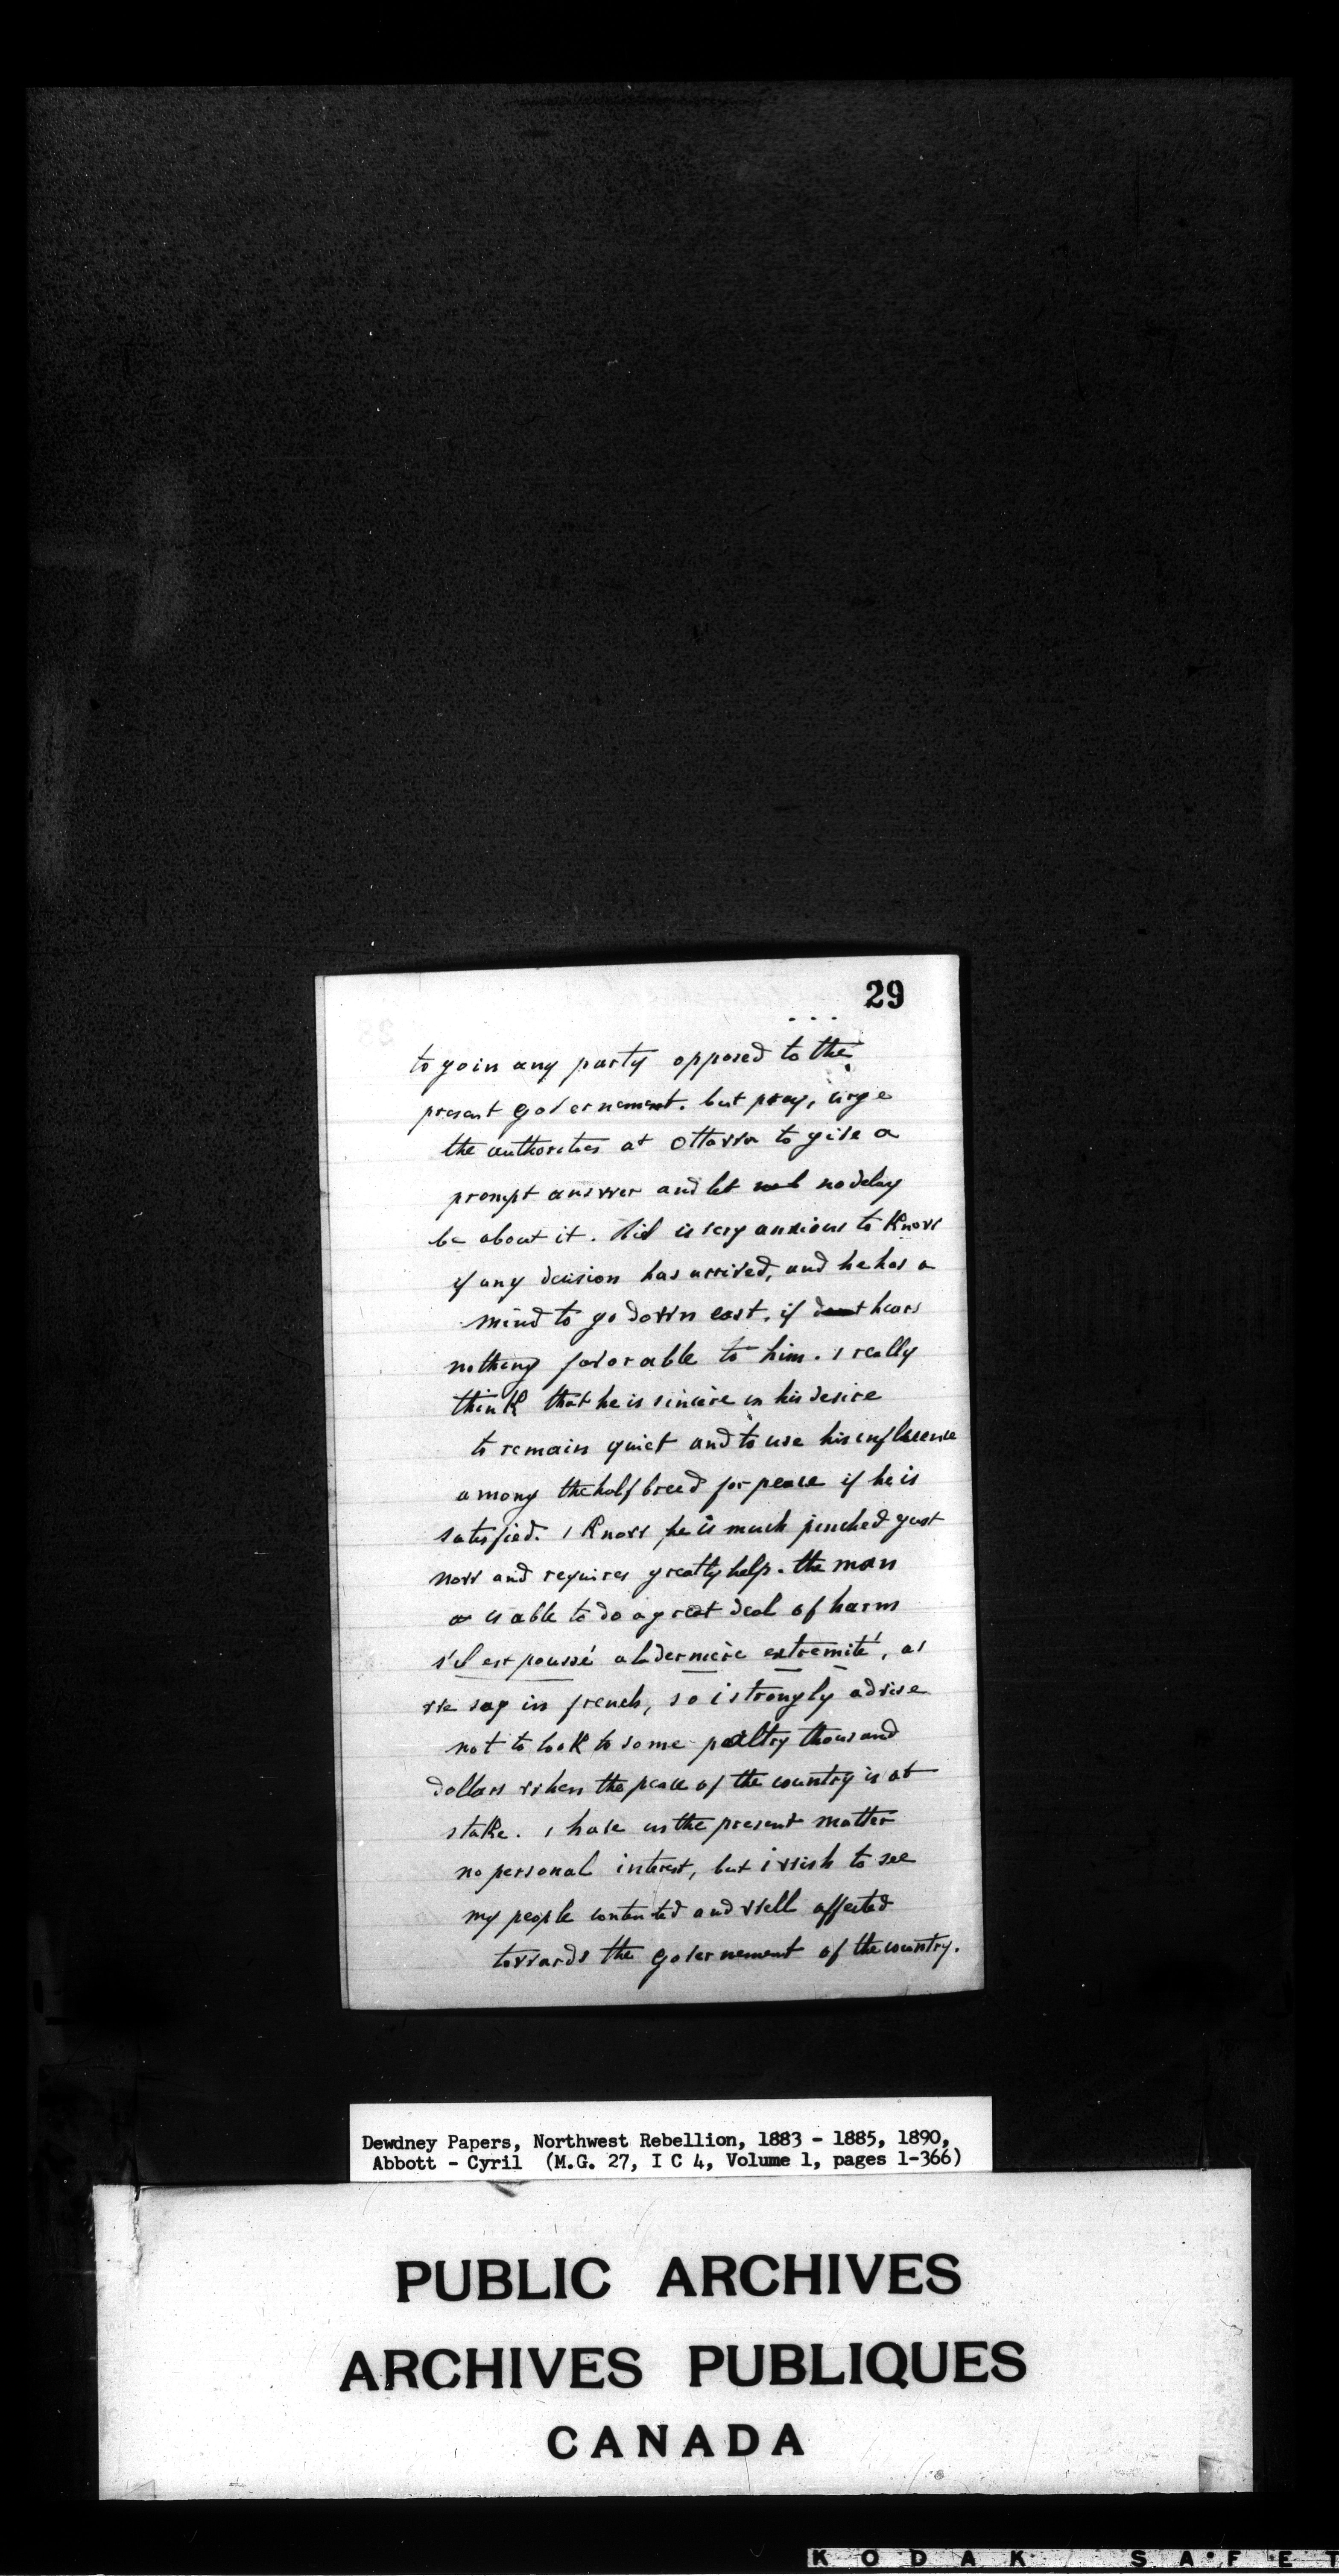 29
to goin any party opposed to the
present governement. but pray, urge
the authorities at Ottawa to give a
prompt answer and let no delay
be about it. Riel is very anxious to know
if any decision has arrived, and he has a
mind to go down east, if hears
nothing favorable to him. i really
think that he is sincère in his desire
to remain quiet and to use his influence
among the half breed for peace if he is
satisfied. i know he is much pinched yust
now and requires greatly help. the man
is able to do a great deal of harm
s'il est poussé a la dernière extremité, as
we say in french, so i strongly advise
not to look to some paltry thousand
dollars when the peace of the country is at
stake. i have in the present matter
no personal interest, but i wish to see
my people contented and well affected
towards the governement of the country.
Dewdney Papers, Northwest Rebellion, 1883 - 1885, 1890,
Abbott - Cyril (M.G. 27, I C 4, Volume 1, pages 1-366)
PUBLIC ARCHIVES
ARCHIVES PUBLIQUES
CANADA
KODAK SAFET